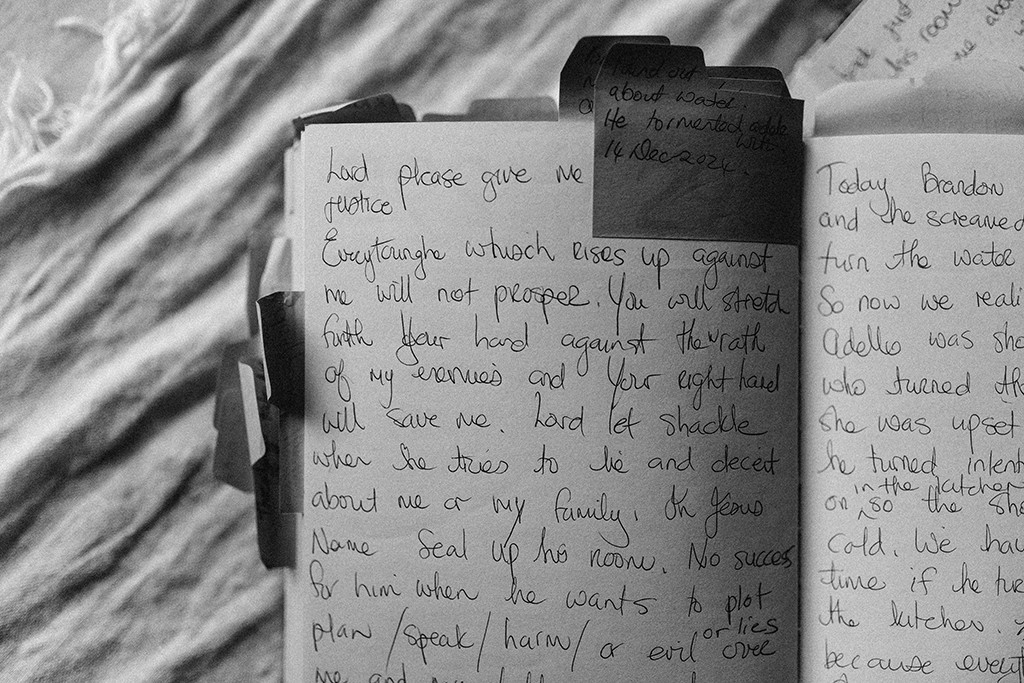 found out
about water.
He tormented adele
with.
14 Dec 2024.
Lord please give me
justice
Everytounghe whisch rises up against
me will not prosper. You will stretch
forth Your hand against the wrath
of my enemies and Your right hand
will save me. Lord let shackle
when he tries to lie and deceit
about me or my family. In Jesus
Name Seal up his room. No success
for him when he wants to plot
plan / speak / harm / or evil or lies over
me and
Today Brandon
and she screamed
turn the water
So now we reali
Adelle was sho
who turned th
she was upset
he turned intent
on, in the kitchen so the sho
cold. We hav
time if he tur
the kitchen.
because everyt
just
his room
he abo